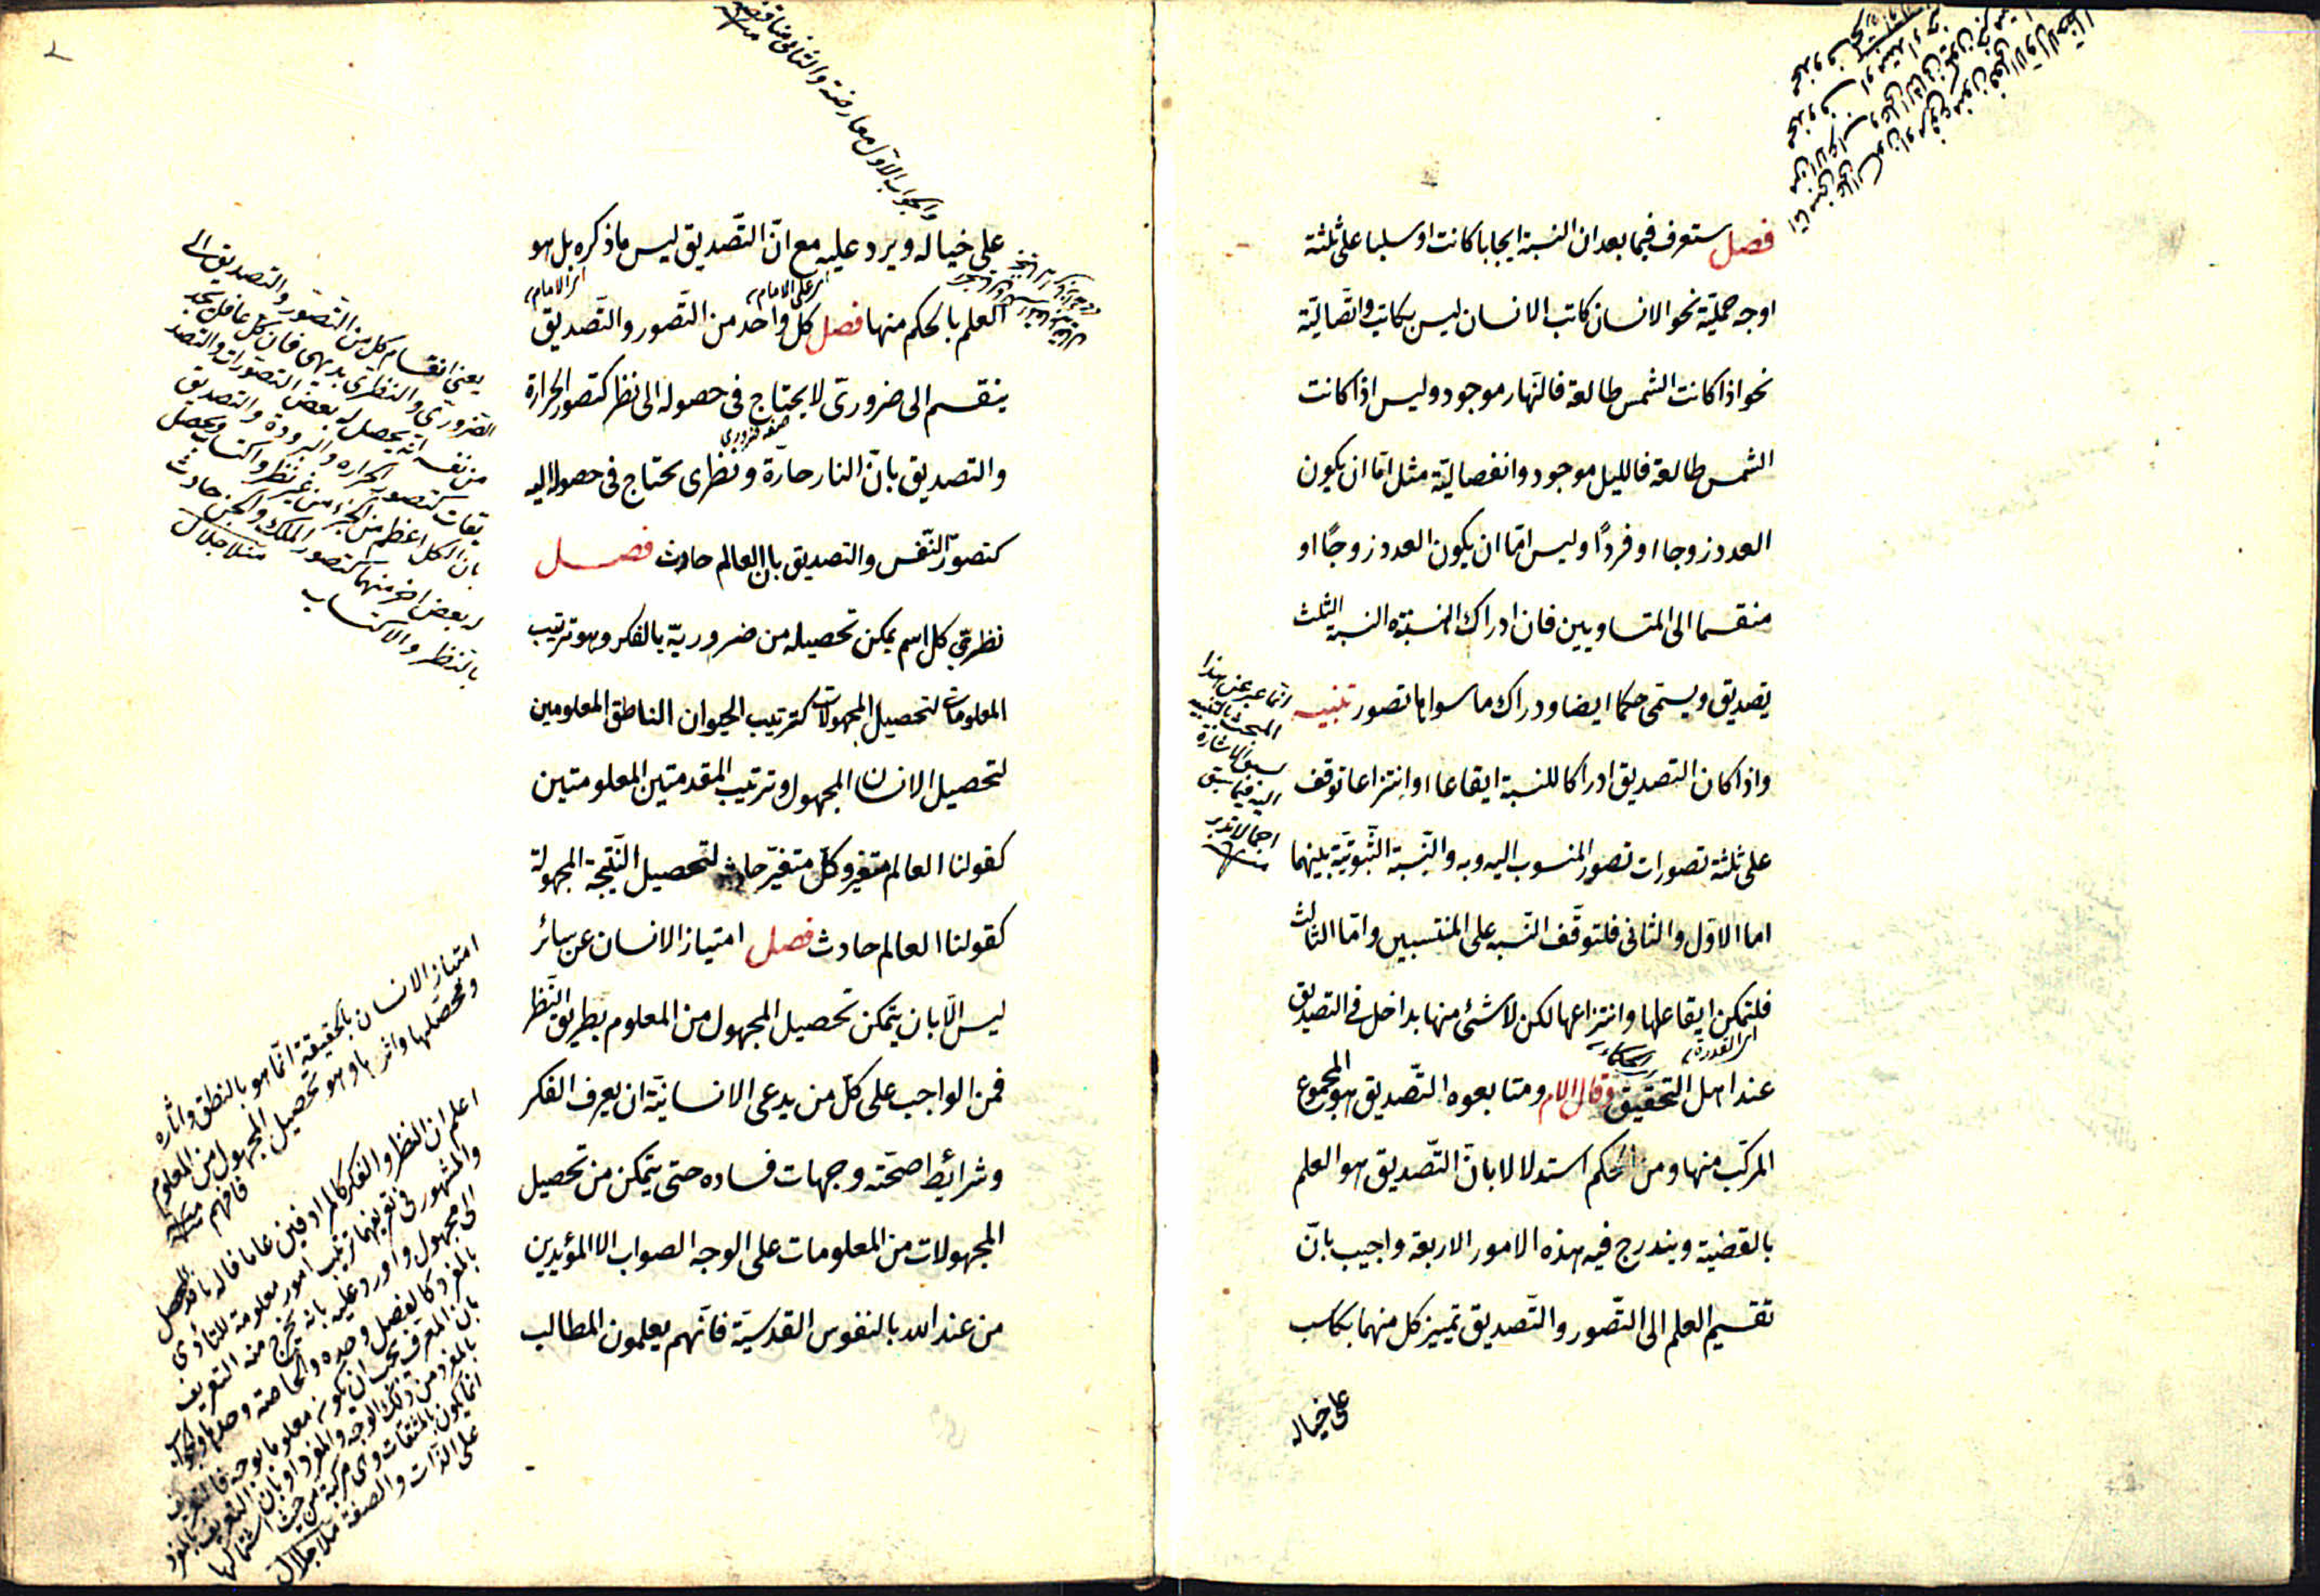 فصل ستعرف فيما بعد ان النسبة ايجابا كانت او سلبا على ثلثة
اوجه حملية نحو الانسان كاتب الانسان ليس بكاتب واتصالية
نحو اذا كانت الشمس طالعة فالنهار موجود وليس اذا كانت
الشمس طالعة فالليل موجود وانفصالية مثل اما ان يكون
العدد زوجا او فردًا وليس اما ان يكون العدد زوجًا او
منقسما الى المتساويين فان ادراك النسبة النسب الثلث
تصديق ويسمى حكما ايضا ودراك ما سواها تصور تنبيه
واذا كان التصديق ادراكا للنسبة ايقاعا او انتزاعا توقف
على ثلثة تصورات تصور المنسوب اليه وبه والنسبة الثبوتية بينهما
اما الاول والثانى فلتوقف النسبه على المنتسبين واما الثالث
فلتمكن ايقاعها وانتزاعها لكن لا شئ منها بداخل فى التصديق
عند اهل التحقيق وقال الامام ومتابعوه التصديق هو المجموع
المركب منها ومن الحكم استدلالا بان التصديق هو العلم
بالقضية ويندرج فيه هذه الامور الاربعة واجيب بان
تقسيم العلم الى التصور والتصديق تمييز كل منهما بكاسب
على خياله
انما عبر عن هذا
المبحث بالتنبيه
سبق الاشارة
اليه فيما سبق
اجمالا تدبر
والجواب الاول معارضة والثانى مناقضة
على خياله ويرد عليه مع ان التصديق ليس ما ذكره بل هو
اى على الامام
اى الامام
العلم بالحكم منها فصل كل واحد من التصور والتصديق
ينقسم الى ضرورى لا يحتاج فى حصوله الى نظر كتصور الحرارة
صفة ضرورى
والتصديق بان النار حارة ونظرى يحتاج فى حصوله اليه
كتصور النفس والتصديق بان العالم حادث فصل
نظرى كل اسم يمكن تحصيله من ضرورية بالفكر وهو ترتيب
المعلومات لتحصيل المجهولات كترتيب الحيوان الناطق المعلومين
لتحصيل الانسان المجهول وترتيب المقدمتين المعلومتين
كقولنا العالم متغير وكل متغير حادث لتحصيل النتيجة المجهولة
كقولنا العالم حادث فصل امتياز الانسان عن سائر
ليس الا بان يتمكن تحصيل المجهول من المعلوم بطريق النظر
فمن الواجب على كل من يدعى الانسانية ان يعرف الفكر
وشرائط صحته وجهات فساده حتى يتمكن من تحصيل
المجهولات من المعلومات على الوجه الصواب الا المؤيدين
من عند الله بالنفوس القدسية فانهم يعلمون المطالب
يعنى انقسام كل من التصور والتصديق الى
الضرورى والنظرى بديهى فان كل عاقل يجد
من نفسه انه يحصل له بعض التصورات والتصد
يقات كتصور الحرارة والبرودة والتصديق
بان الكل اعظم من الجزء من غير نظر واكتساب ويحصل
له بعض اخر منهما كتصور الملك والجن حادث
بالنظر والاكتساب منلا جلال
امتياز الانسان بالحقيقة انما هو بالنطق واثاره
ومحصلها واثرها وهو تحصيل المجهول من المعلوم
فافهم
اعلم ان النظر والفكر كالمرادفين
والمشهور فى تعريفهما ترتيب امور معلومة للتأدى
الى مجهول واورد عليه بانه يخرج منه التعريف
بالمفرد كالفصل وحده والخاصة وحدها والجواب
بان المعرف يجب ان يكون معلوما بوجه فالتعريف
بالمفرد من ذلك الوجه والمفرد او بان التعريف بالمفرد
انما يكون بالمشتقات وهى مركبة من حيث اشتمالها
على الذات والصفة منلا جلال